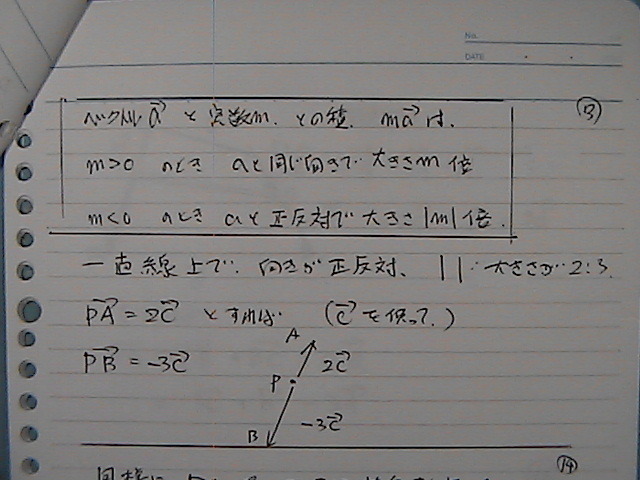 No.
DATE
⑬
ベクトル a→ と 実数m. との積. ma→ は.
m>0 のとき aと同じ向きで 大きさm 倍
m<0 のとき aと正反対で 大きさ|m|倍.
一直線上で. 向きが正反対、 | |. 大きさが 2:3.
PA→ = 2c→ とすれば (c→ を使って.)
PB→ = -3c→
A
2c→
P
-3c→
B
⑭
同様に